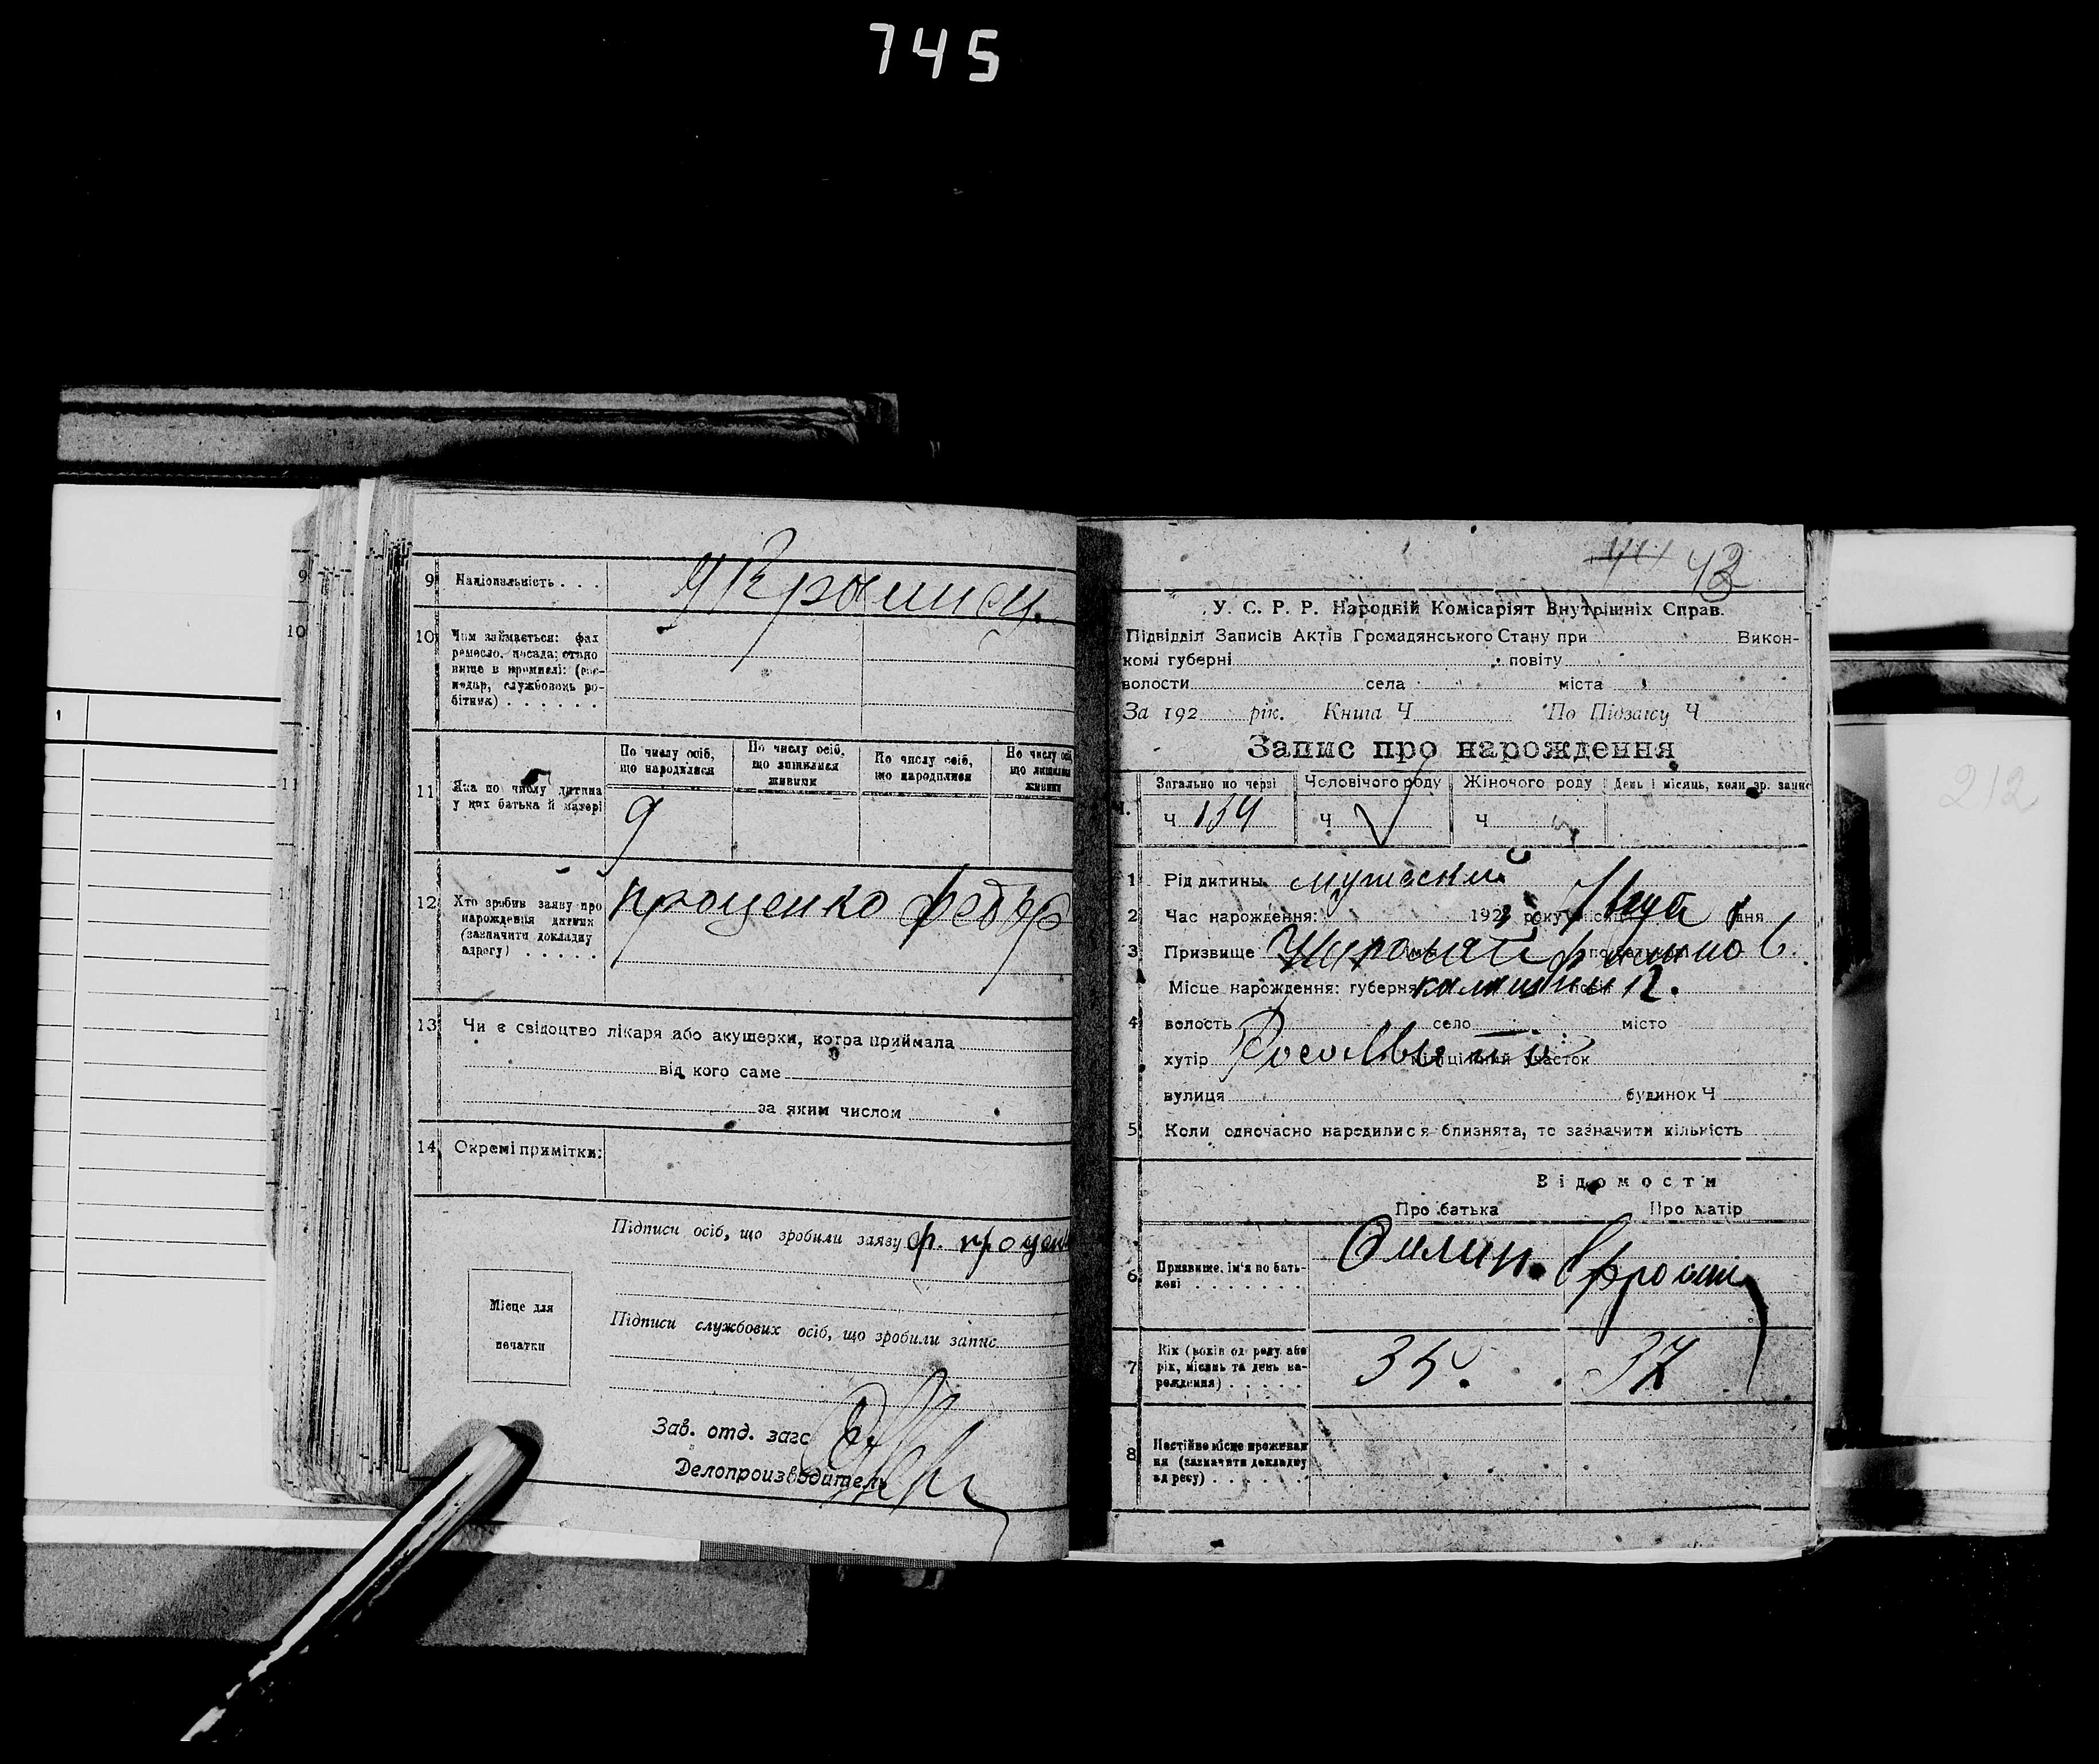 745
9 Національність . . .
10 Чим займається: фах
ремесло, посада: стано
вище в промислі: (гос-
подар, службовець ро-
бітник) . . . . . .
11 Яка по числу дитина
у цих батька й матері
По числу осіб,
що народилися
По числу осіб,
що лишилися
живими
По числу осіб,
що народилися
По числу осіб
що лишилися
живими
9
12 Хто зробив заяву про
народження дитини
(зазначити докладну
адресу) . . . . .
Проценко Федор
13 Чи є свідоцтво лікаря або акушерки, котра приймала
від кого саме
за яким числом
14 Окремі примітки:
Підписи осіб, що зробили заяву Ф. Процен
Місце для
печатки
Підписи службових осіб, що зробили запис
Зав. отд. загс
Делопроизводитель
43
У. С. Р. Р. Народній Комісаріят Внутрішніх Справ.
Підвідділ Записів Актів Громадянського Стану при Викон-
комі губерні повіту
волости села міста
За 192 рік. Книга Ч По Підзагсу Ч
Запис про нарождення
Загально по черзі Чоловічого роду Жіночого роду День і місяць, коли зр. запис
Ч 134 Ч V Ч
1 Рід дитини мужеский
2 Час нарождення: 192 року місяця дня
3 Призвище
Місце нарождення: губерня
4 волость село місто
хутір міліційний участок
вулиця будинок Ч
5 Коли одночасно народилися близнята, то зазначити кількість
Відомости
Про батька Про матір
6 Призвище, ім'я по бать-
кові . . . . . . .
7 Вік (років од роду, або
рік, місяць та день на-
рождення) . . . . .
35. 37
8 Постійне місце проживан
ня (зазначити докладну
адресу) . . . . . .
212